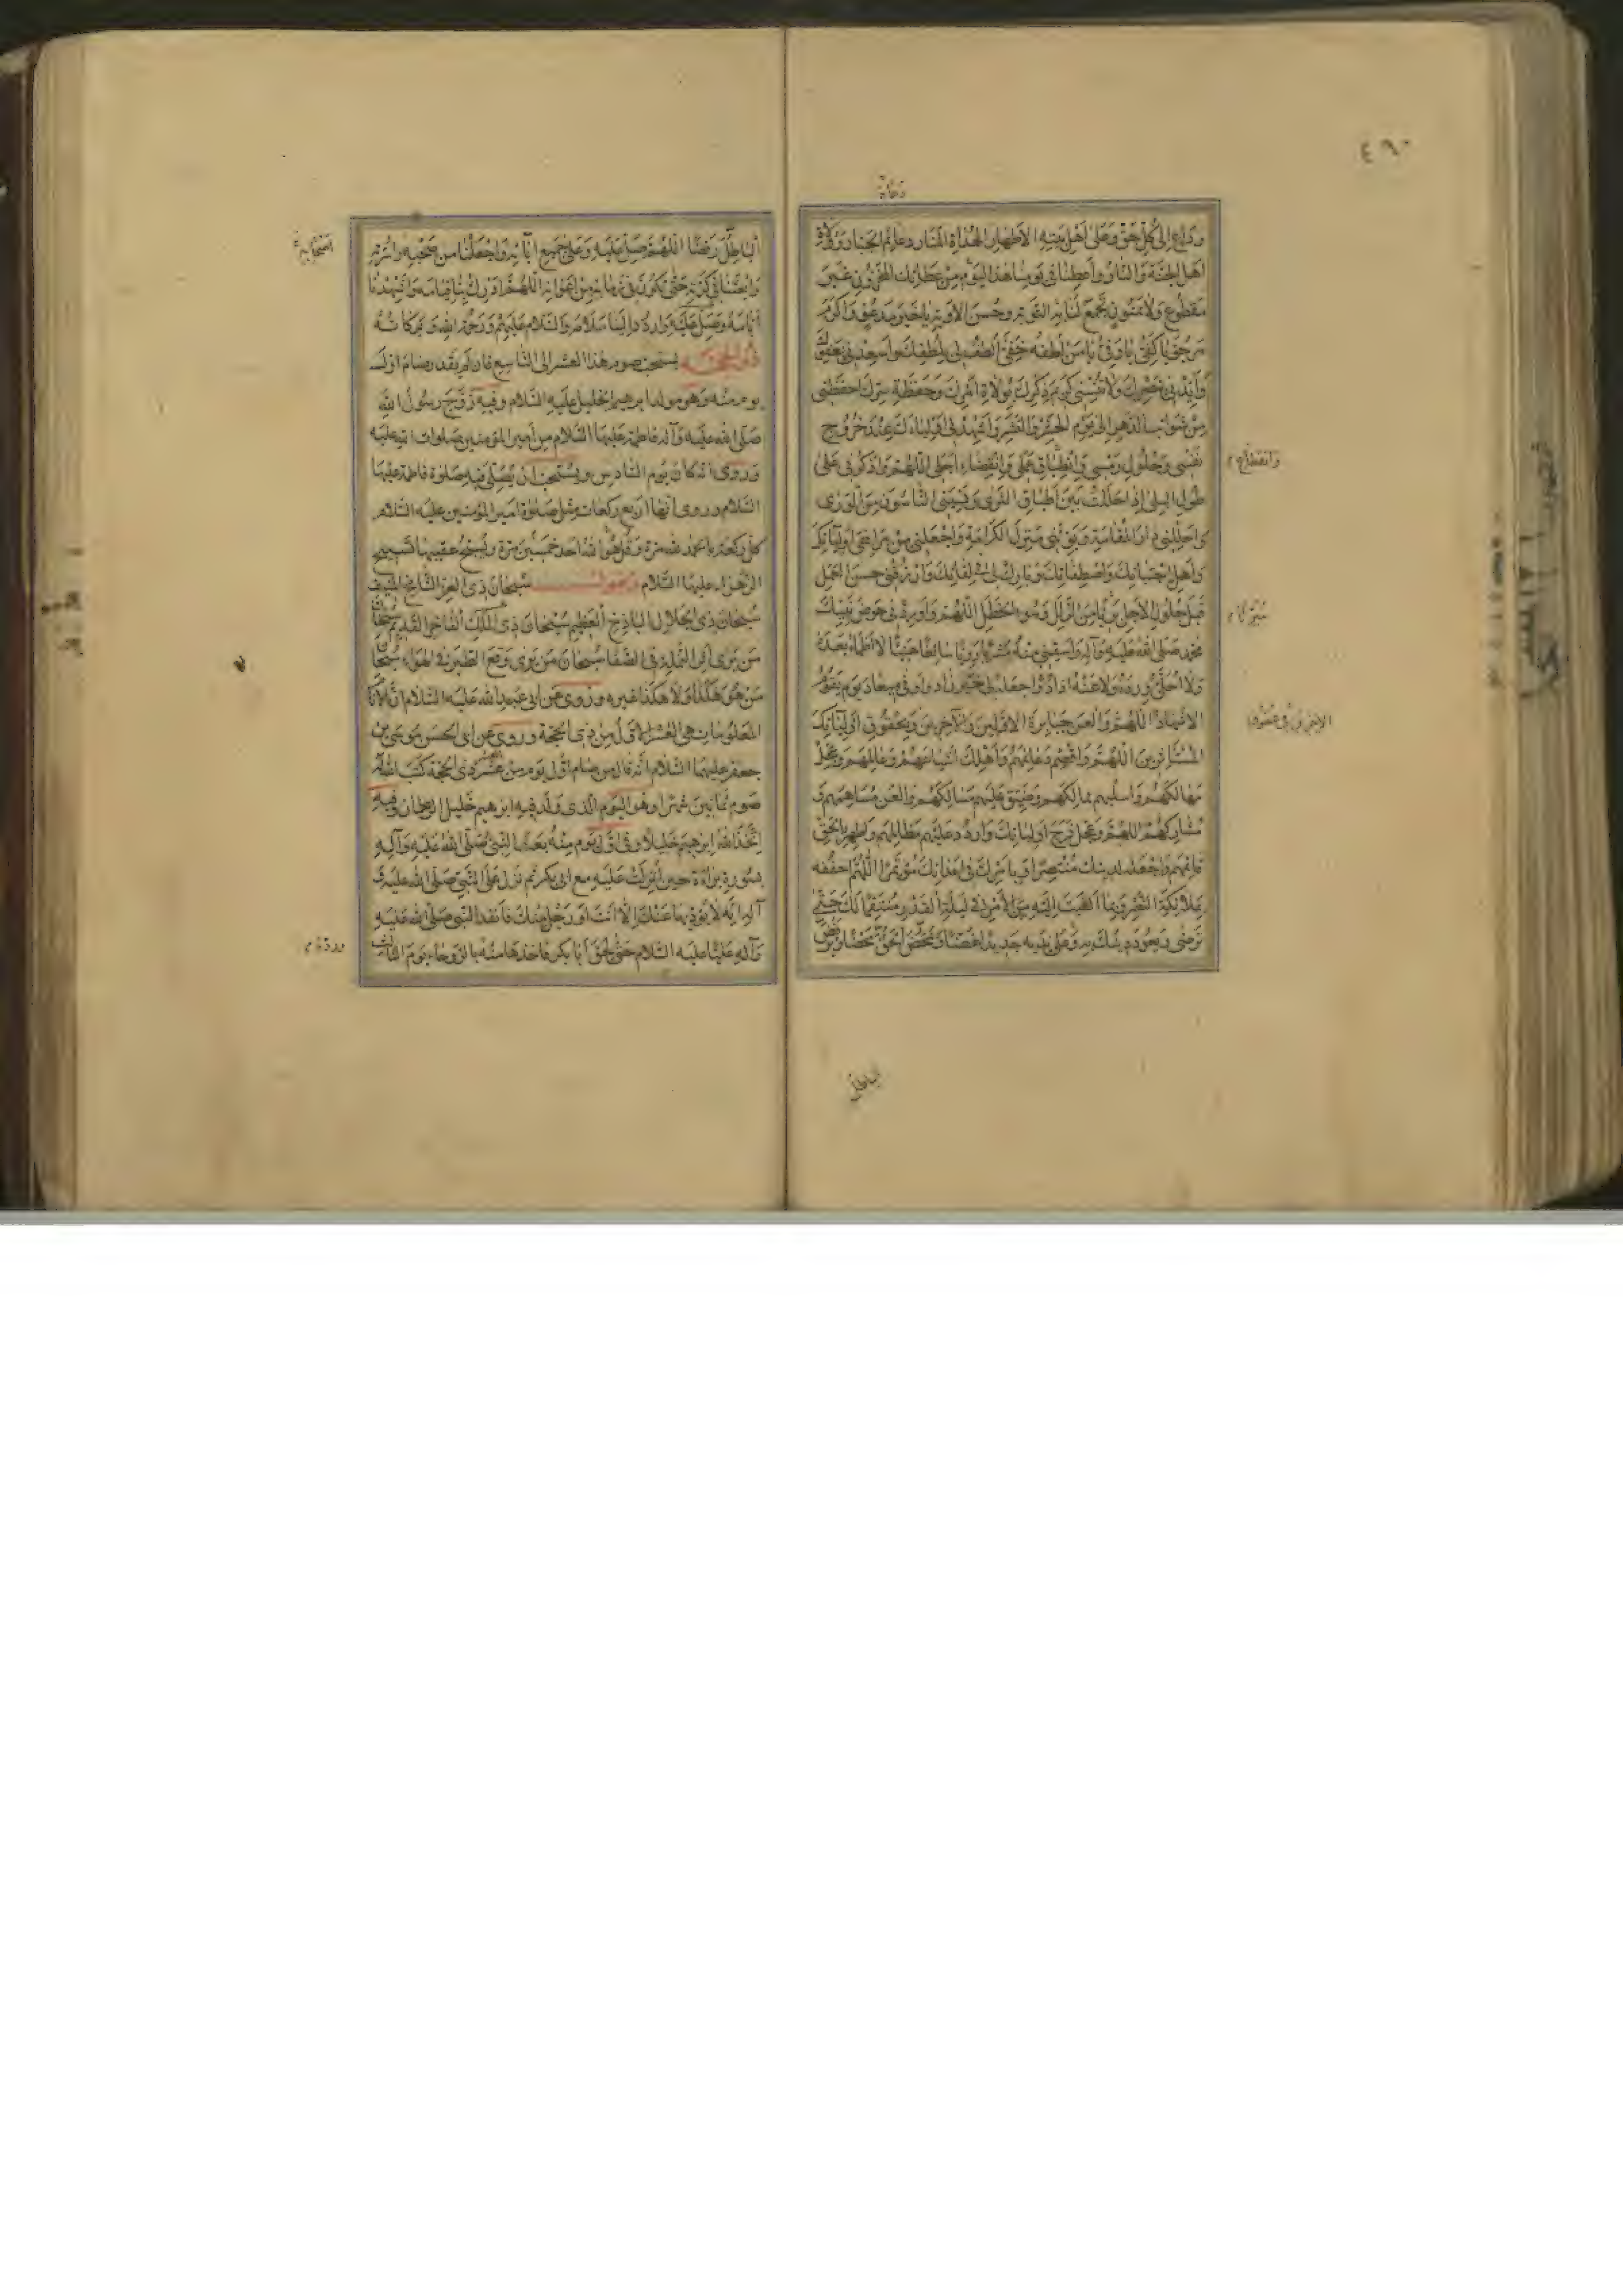 ٤٩٠
دعاة
وداع الى كل حق وعلى اهل بيته الاطهار الهداة المنار دعائم الجبار وولاة
اهل الجنة والنار واعطنا في يومنا هذا اليوم من عطائك المخزون غير
مقطوع ولا ممنون تجمع لنا به التوبة وحسن الاوبة يا خير مدعو واكرم
مرجو يا كفي يا وفي يا من لطفه خفي الطف لي بلطفك واسعدني بعفوك
وايدني بنصرك ولا تنسني كريم ذكرك بولاة امرك وحفظة سرك احفظني
من شوائب الدهر الى يوم الحشر والنشر واشهدني اولياءك عند خروج
نفسي وحلول رمسي وانطباق عملي وانقضاء اجلي اللهم واذكرني على
وانقطاع
طول البلى اذا حللت بين اطباق الثرى ونسيني الناسون من الورى
واحللني دار المقامة وبوئني منزل الكرامة واجعلني من مرافقي اوليائك
واهل اجتبائك واصطفائك وبارك لي في لقائك وارزقني حسن العمل
قبل حلول الاجل بريا من الزلل وسوء الخطل اللهم واوردني حوض نبيك
متبرئا
محمد صلى الله عليه وآله واسقني منه مشربا رويا سائغا هنيئا لا اظماء بعده
ولا احلئ ورده ولا عنه اذاد واجعله لي خير زاد واوفى ميعاد يوم يقوم
الاشهاد اللهم والعن جبابرة الاولين والآخرين وبحقوق اوليائك
المستاثرين اللهم واقصم دعائمهم واهلك اشياعهم وعاملهم وعجل
مهالكهم واسلبهم ممالكهم وضيق عليهم مسالكهم والعن مساهمهم و
مشاركهم اللهم وعجل فرج اوليائك واردد عليهم مظالمهم واظهر بالحق
قائمهم واجعله لدينك منتصرا وبامرك في اعدائك مؤتمرا اللهم احففه
بملائكة النصر وبما القيت اليه من الامر في ليلة القدر منتقما لك حتى
ترضى ويعود دينك به وعلى يديه جديدا غضا ويمحض الحق محضا ويرفض
اباطل
اباطل رفضا اللهم صل عليه وعلى جميع آبائه واجعلنا من صحبه واسرته
اصحابه
وابعثنا في كرته حتى نكون في زمانه من اعوانه اللهم ادرك بنا قيامه واشهدنا
ايامه وصل عليه واردد الينا سلامه والسلام عليهم ورحمة الله وبركاته
ذو الحجة يستحب صوم هذا العشر الى التاسع فان لم يقدر صام اول
يوم منه وهو مولد ابرهيم الخليل عليه السلام وفيه زوج رسول الله
صلى الله عليه وآله فاطمة عليها السلام من امير المؤمنين صلوات الله عليه
وروى انه كان يوم السادس ويستحب ان يصلى فيه صلوة فاطمة عليها
السلام وروى انها اربع ركعات مثل صلوة امير المؤمنين عليه السلام
كل ركعة بالحمد لله مرة وقل هو الله احد خمسين مرة ويسبح عقيبها تسبيح
الزهراء عليها السلام ويقول سبحان ذي العز الشامخ المنيف
سبحان ذي الجلال الباذخ العظيم سبحان ذي الملك الفاخر القديم سبحان
من يرى اثر النملة في الصفا سبحان من يرى وقع الطير في الهواء سبحان
من هو هكذا ولا هكذا غيره وروى عن ابي عبد الله عليه السلام ان الايام
المعلومات هي العشر الاول من ذي الحجة وروى عن ابي الحسن موسى بن
جعفر عليهما السلام انه قال من صام اول يوم من عشر ذي الحجة كتب الله له
صوم ثمانين شهرا وهو اليوم الذي ولد فيه ابرهيم خليل الرحمان وفيه
اتخذ الله ابرهيم خليلا وفي اول يوم منه بعث النبي صلى الله عليه وآله
بسورة براءة حين انزلت عليه مع ابي بكر ثم نزل على النبي صلى الله عليه و
آله انه لا يؤديها عنك الا انت او رجل منك فانفذ النبي صلى الله عليه و
وآله عليا عليه السلام حتى لحق ابا بكر فاخذها منه بالروحاء يوم الثالث